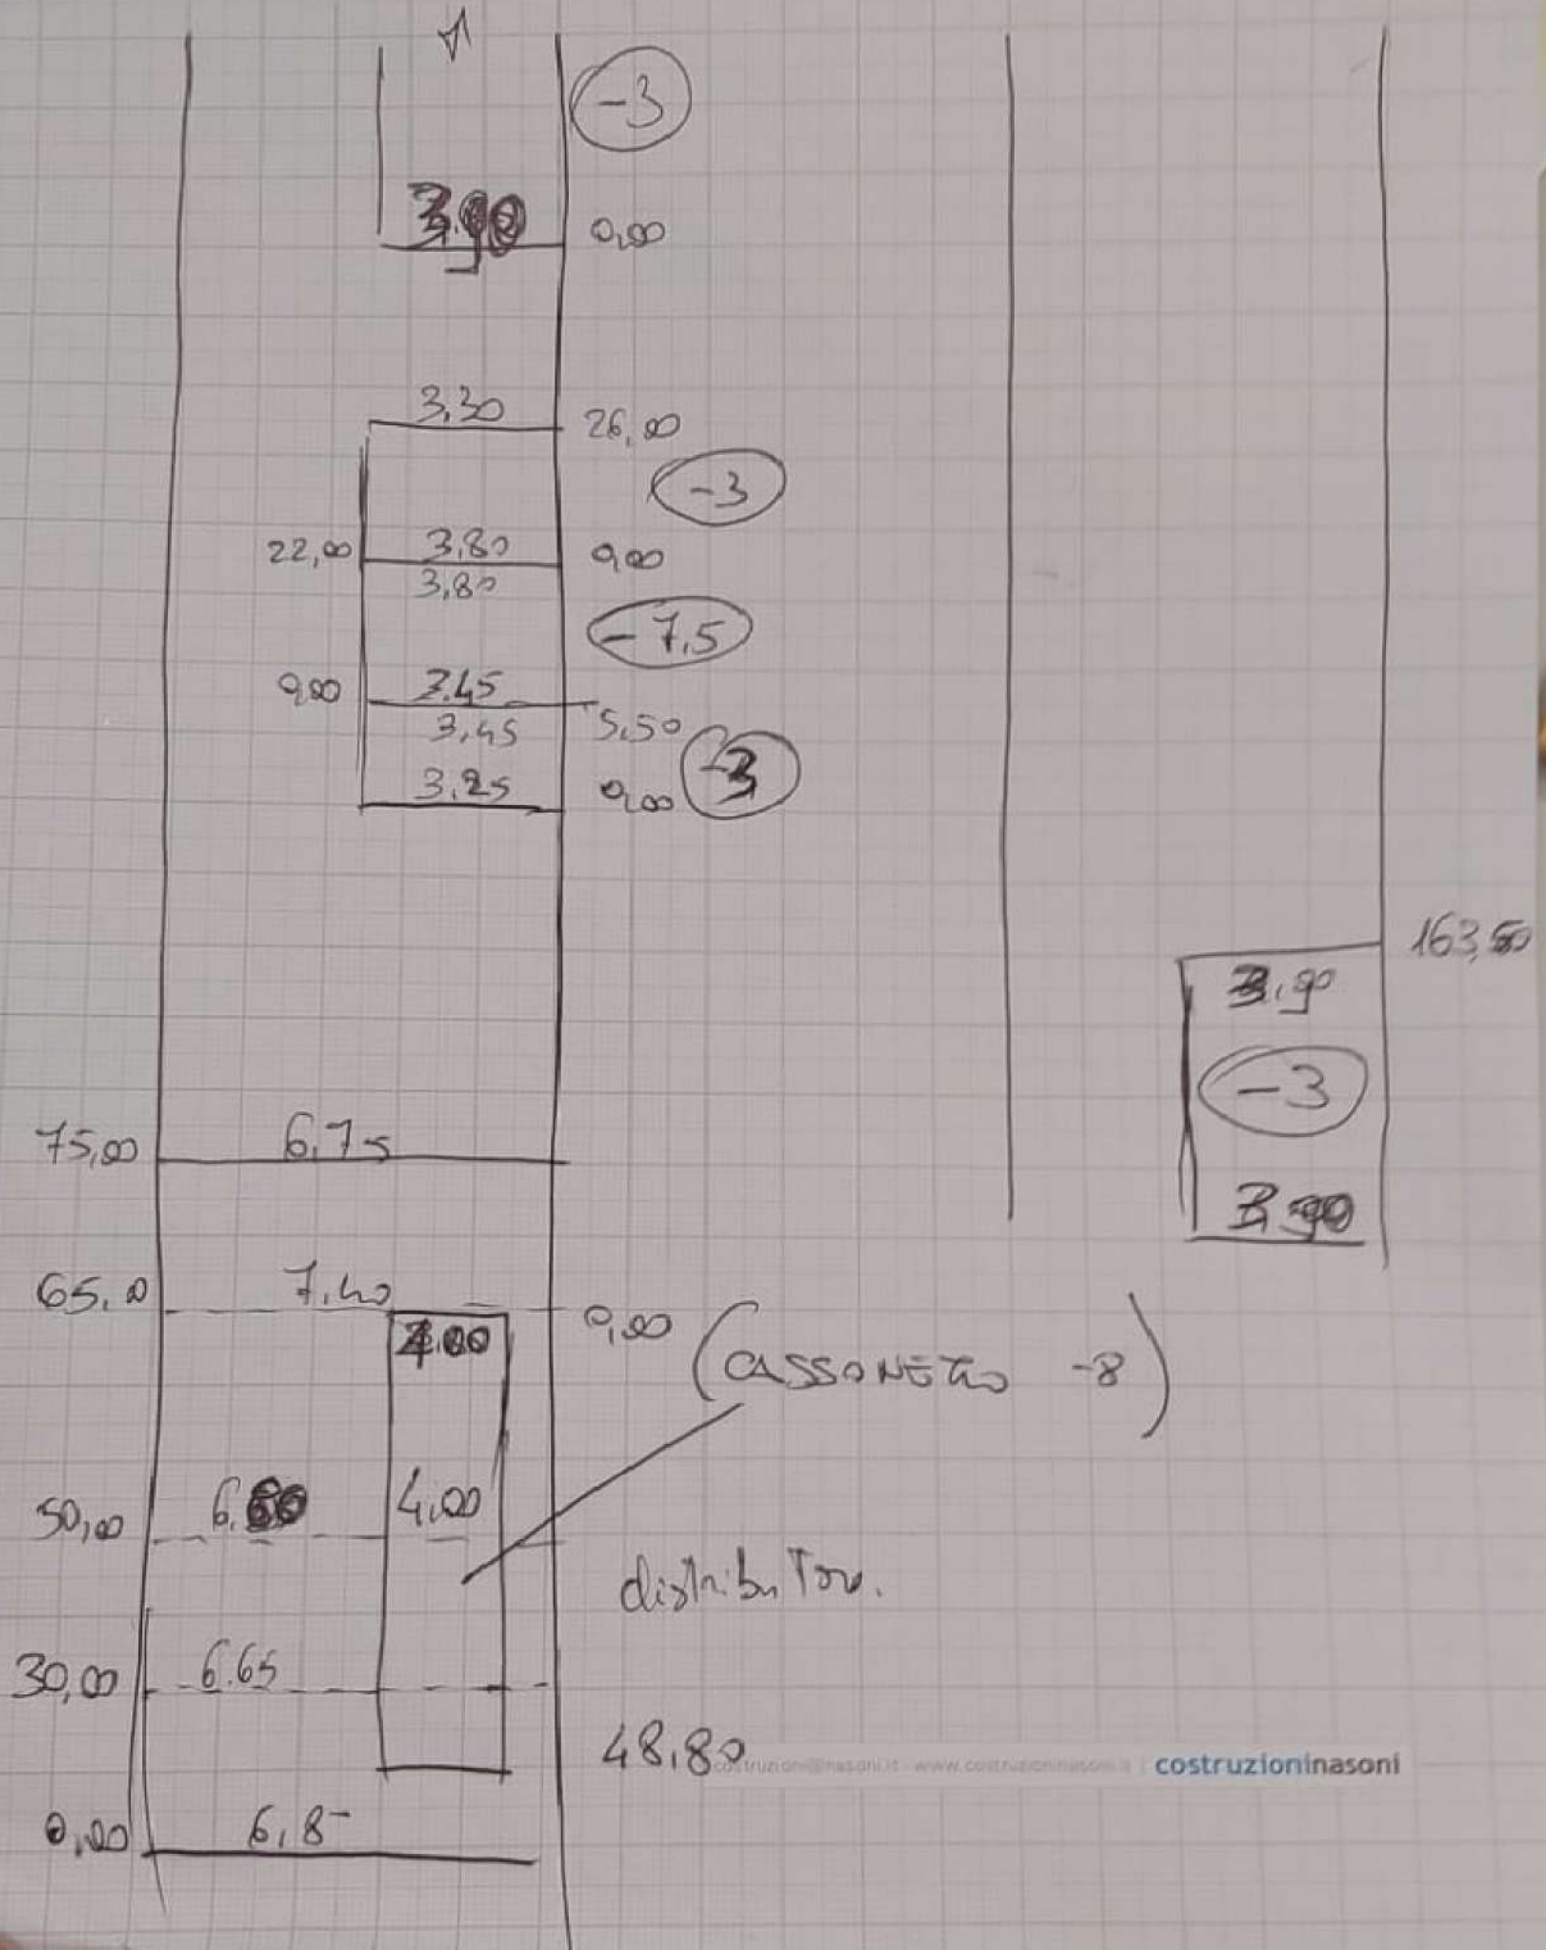 -3
3.90
0,00
3,30
26,00
-3
22,00
3,80
0,00
3,80
-7,5
0,00
3.45
5,50
3,45
-3
3.25
0,00
163,50
3.90
-3
3.90
75,00
6,75
65,00
7,40
0,00
4.00
(CASSONETTO -8)
50,00
6.60
4,00
distributore.
30,00
6.65
48,80
costruzioni@nasoni.it - www.costruzioninasoni.it | costruzioninasoni
0,00
6,85